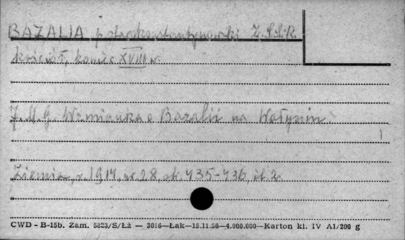 BAZALIA, p. starokonstantynowski Z.S.S.R.
kościół, koniec XVIII w.
J.M.G. Wzmianka o Bazalii na Wołyniu
Ziemia, r. 1917, nr 28, str. 435-436, il. 2
CWD - B-15b. Zam. 5823/S/Łż — 2016—Łak—15.11.56—4.000.000—Karton kl. IV A1/200 g